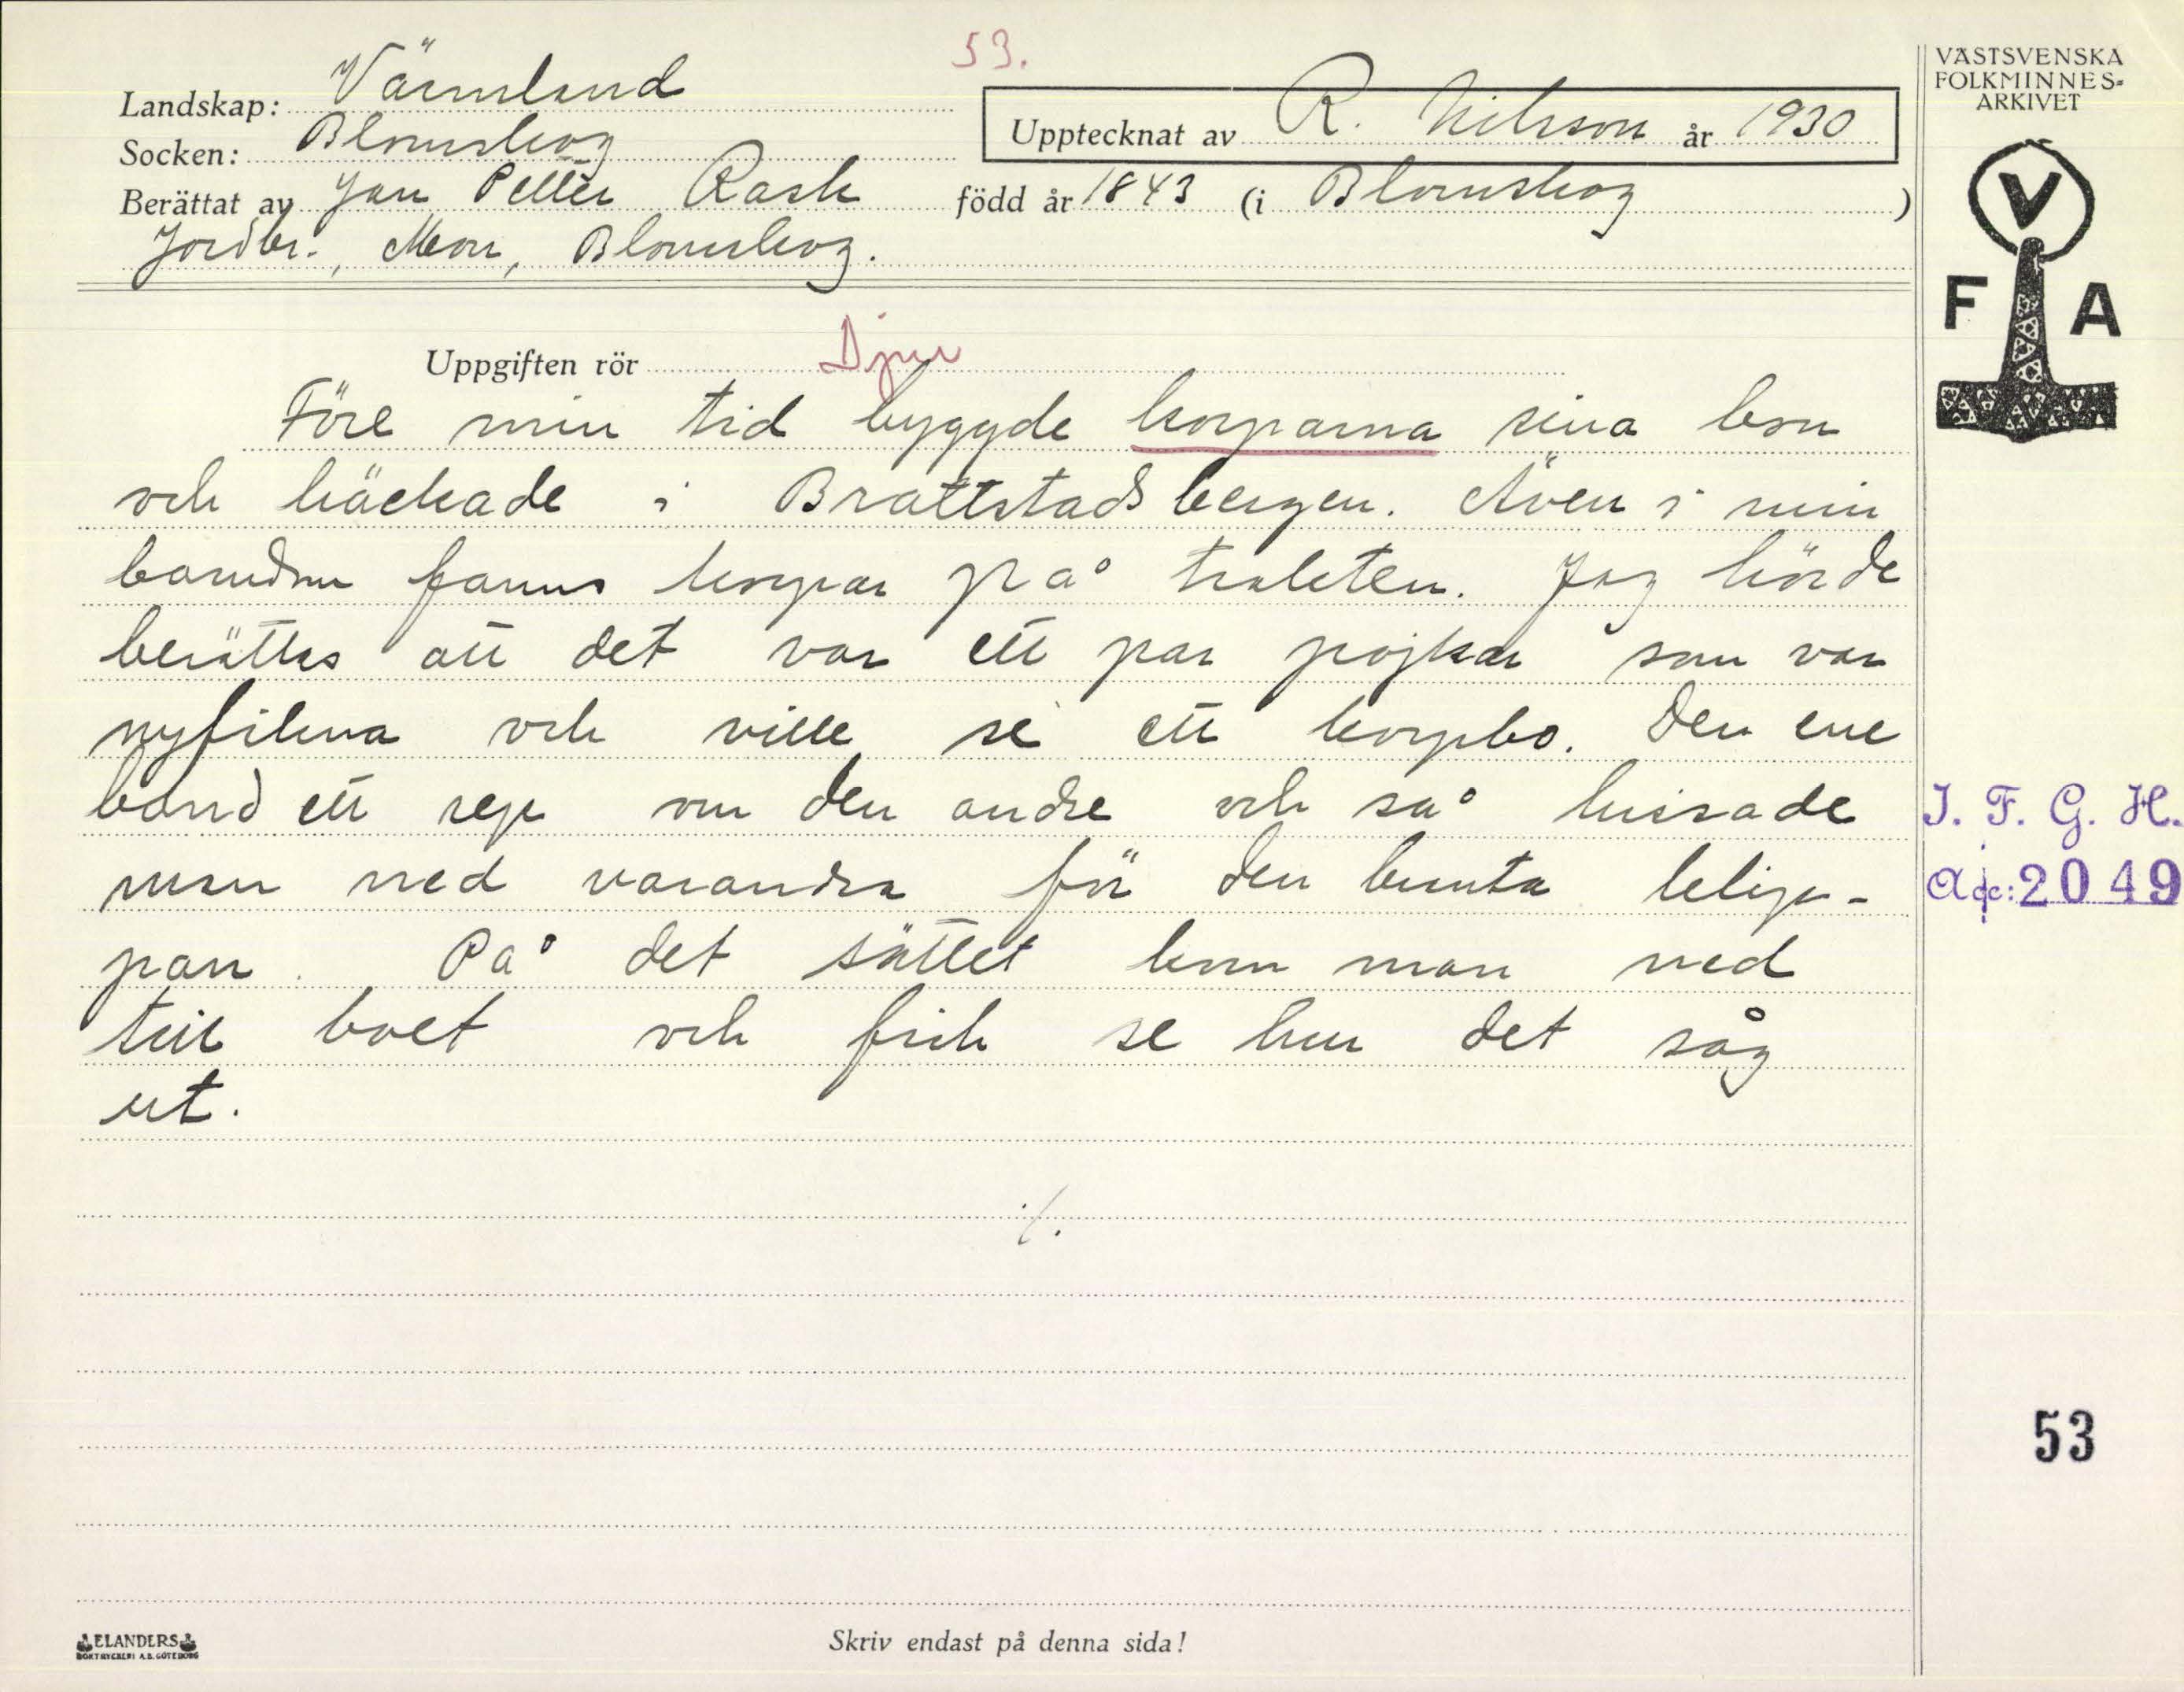 53.
Landskap: Värmland
Socken: Blomskog
Upptecknat av R. Nilsson år 1930
Berättat av Jan Petter Rask född år 1843 (i Blomskog)
Jordbr., Mon, Blomskog.
VÄSTSVENSKA
FOLKMINNES-
ARKIVET
V
F A
Uppgiften rör Djur
Före min tid byggde korparna sina bon
och häckade i Brattstadsbergen. Även i min
barndom fanns korpar på trakten. Jag hörde
berättas att det var ett par pojkar som var
nyfikna och ville se ett korpbo. Den ene
band ett rep om den andre och så hissade
man ned varandra för den branta klip-
pan. På det sättet kom man ned
till boet och fick se hur det såg
ut.
./.
I. F. G. H.
Acc: 2049
53
ELANDERS
BOKTRYCKERI A.B. GÖTEBORG
Skriv endast på denna sida!